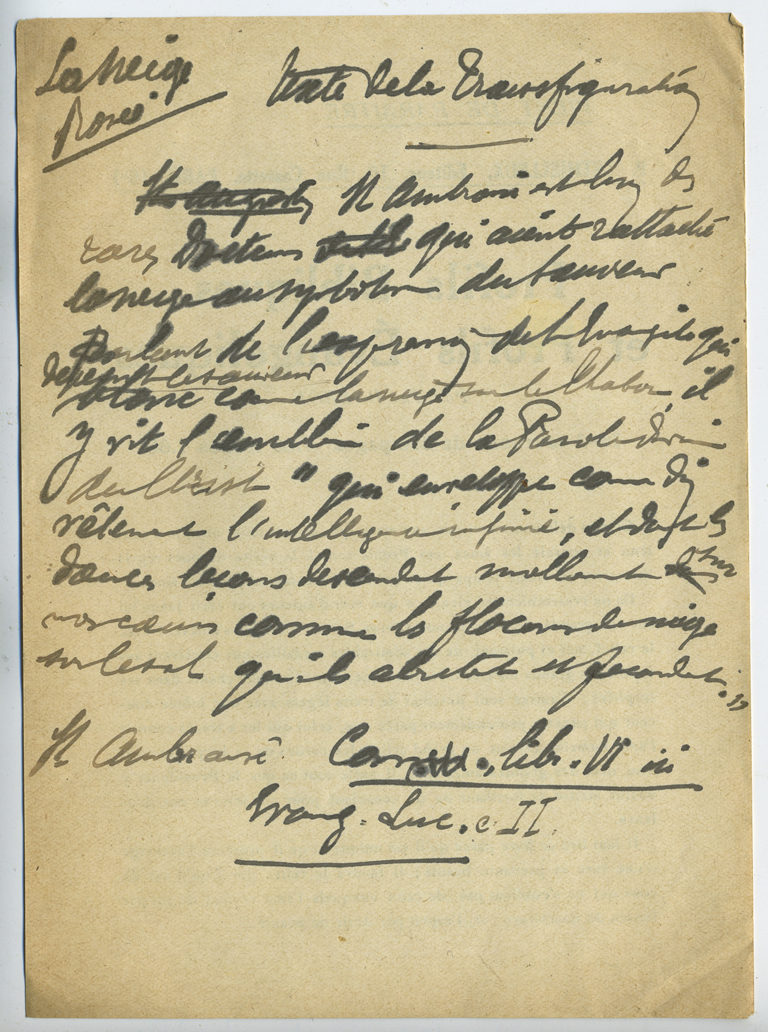 La neige
Rosée
Texte de la Transfiguration
St Augustin St Ambroise est l'un des
rares Docteurs qui aient rattaché
la neige au symbolisme du Sauveur
Parlant de l'expression de l'Evangile qui
dépeint le Sauveur
blanc comme la neige sur le Thabor, il
y vit l'emblème de la Parole divine
du Christ " qui enveloppe comme d'un
vêtement l'intelligence infinie, et dont les
douces leçons descendent mollement sur
nos cœurs comme les flocons de neige
sur le sol qu'ils abritent et fécondent. "
St Ambroise. Com. libr. VI in
Evang. Luc. c. II.